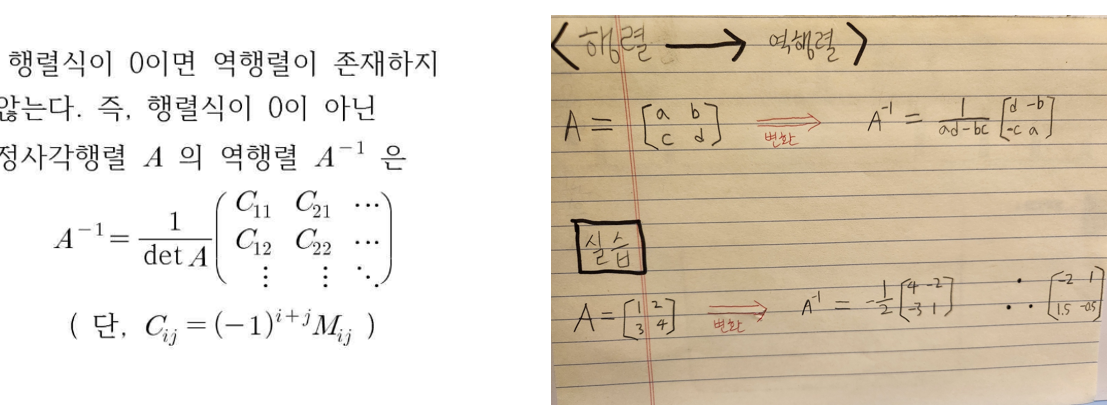 행렬식이 0이면 역행렬이 존재하지
않는다. 즉, 행렬식이 0이 아닌
정사각행렬 A 의 역행렬 A⁻¹ 은
A⁻¹ = 1/det A ( C₁₁ C₂₁ ⋯
C₁₂ C₂₂ ⋯
⋮ ⋮ ⋱ )
( 단, Cᵢⱼ = (-1)ⁱ⁺ʲ Mᵢⱼ )
<행렬 → 역행렬>
A = [a b
c d] ⇒ 변환 A⁻¹ = 1/ad-bc [d -b
-c a]
실습
A = [1 2
3 4] ⇒ 변환 A⁻¹ = -1/2 [4 -2
-3 1] ∴ [-2 1
1.5 -0.5]